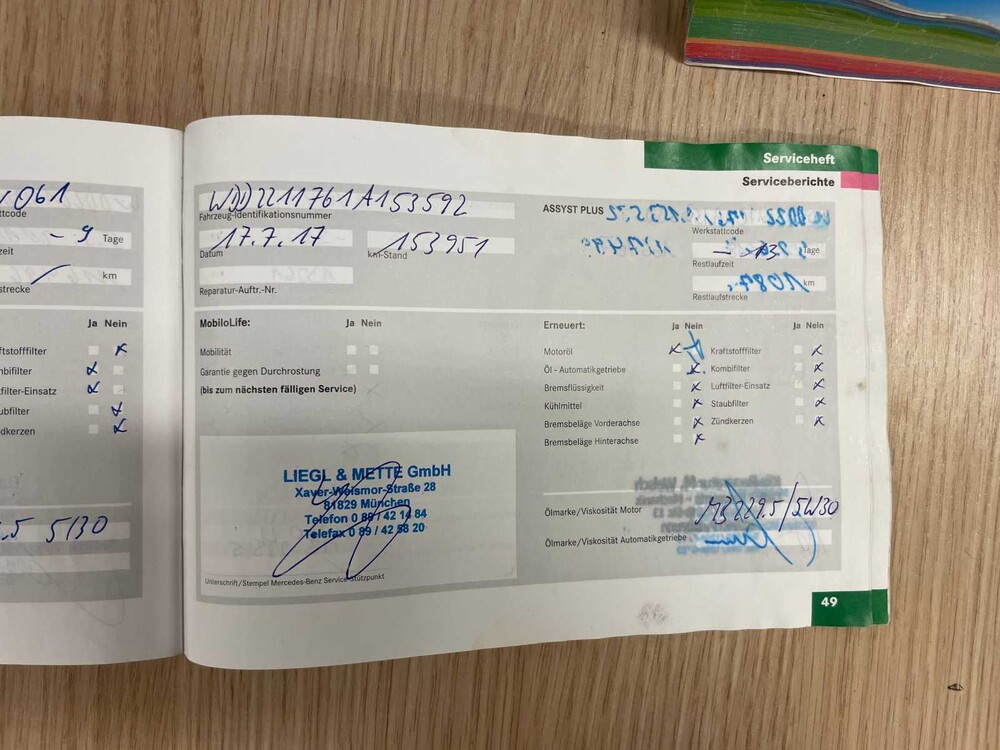 061
ttcode
- 9 Tage
zeit
km
strecke
Ja Nein
ftstofffilter
mbifilter
filter-Einsatz
ubfilter
dkerzen
.5 5/30
Serviceheft
Serviceberichte
WDD2211761A153592
Fahrzeug-Identifikationsnummer
17.7.17
Datum
153951
km-Stand
Reparatur-Auftr.-Nr.
ASSYST PLUS
Werkstattcode
Tage
Restlaufzeit
km
Restlaufstrecke
MobiloLife:
Ja Nein
Mobilität
Garantie gegen Durchrostung
(bis zum nächsten fälligen Service)
LIEGL & METTE GmbH
Xaver-Weismor-Straße 28
81829 München
Telefon 0 89 / 42 14 84
Telefax 0 89 / 42 58 20
Unterschrift/Stempel Mercedes-Benz Service-Stützpunkt
Erneuert:
Ja Nein
Ja Nein
Motoröl
Kraftstofffilter
Öl - Automatikgetriebe
Kombifilter
Bremsflüssigkeit
Luftfilter-Einsatz
Kühlmittel
Staubfilter
Bremsbeläge Vorderachse
Zündkerzen
Bremsbeläge Hinterachse
Ölmarke/Viskosität Motor
MB 229.5/5W30
Ölmarke/Viskosität Automatikgetriebe
49